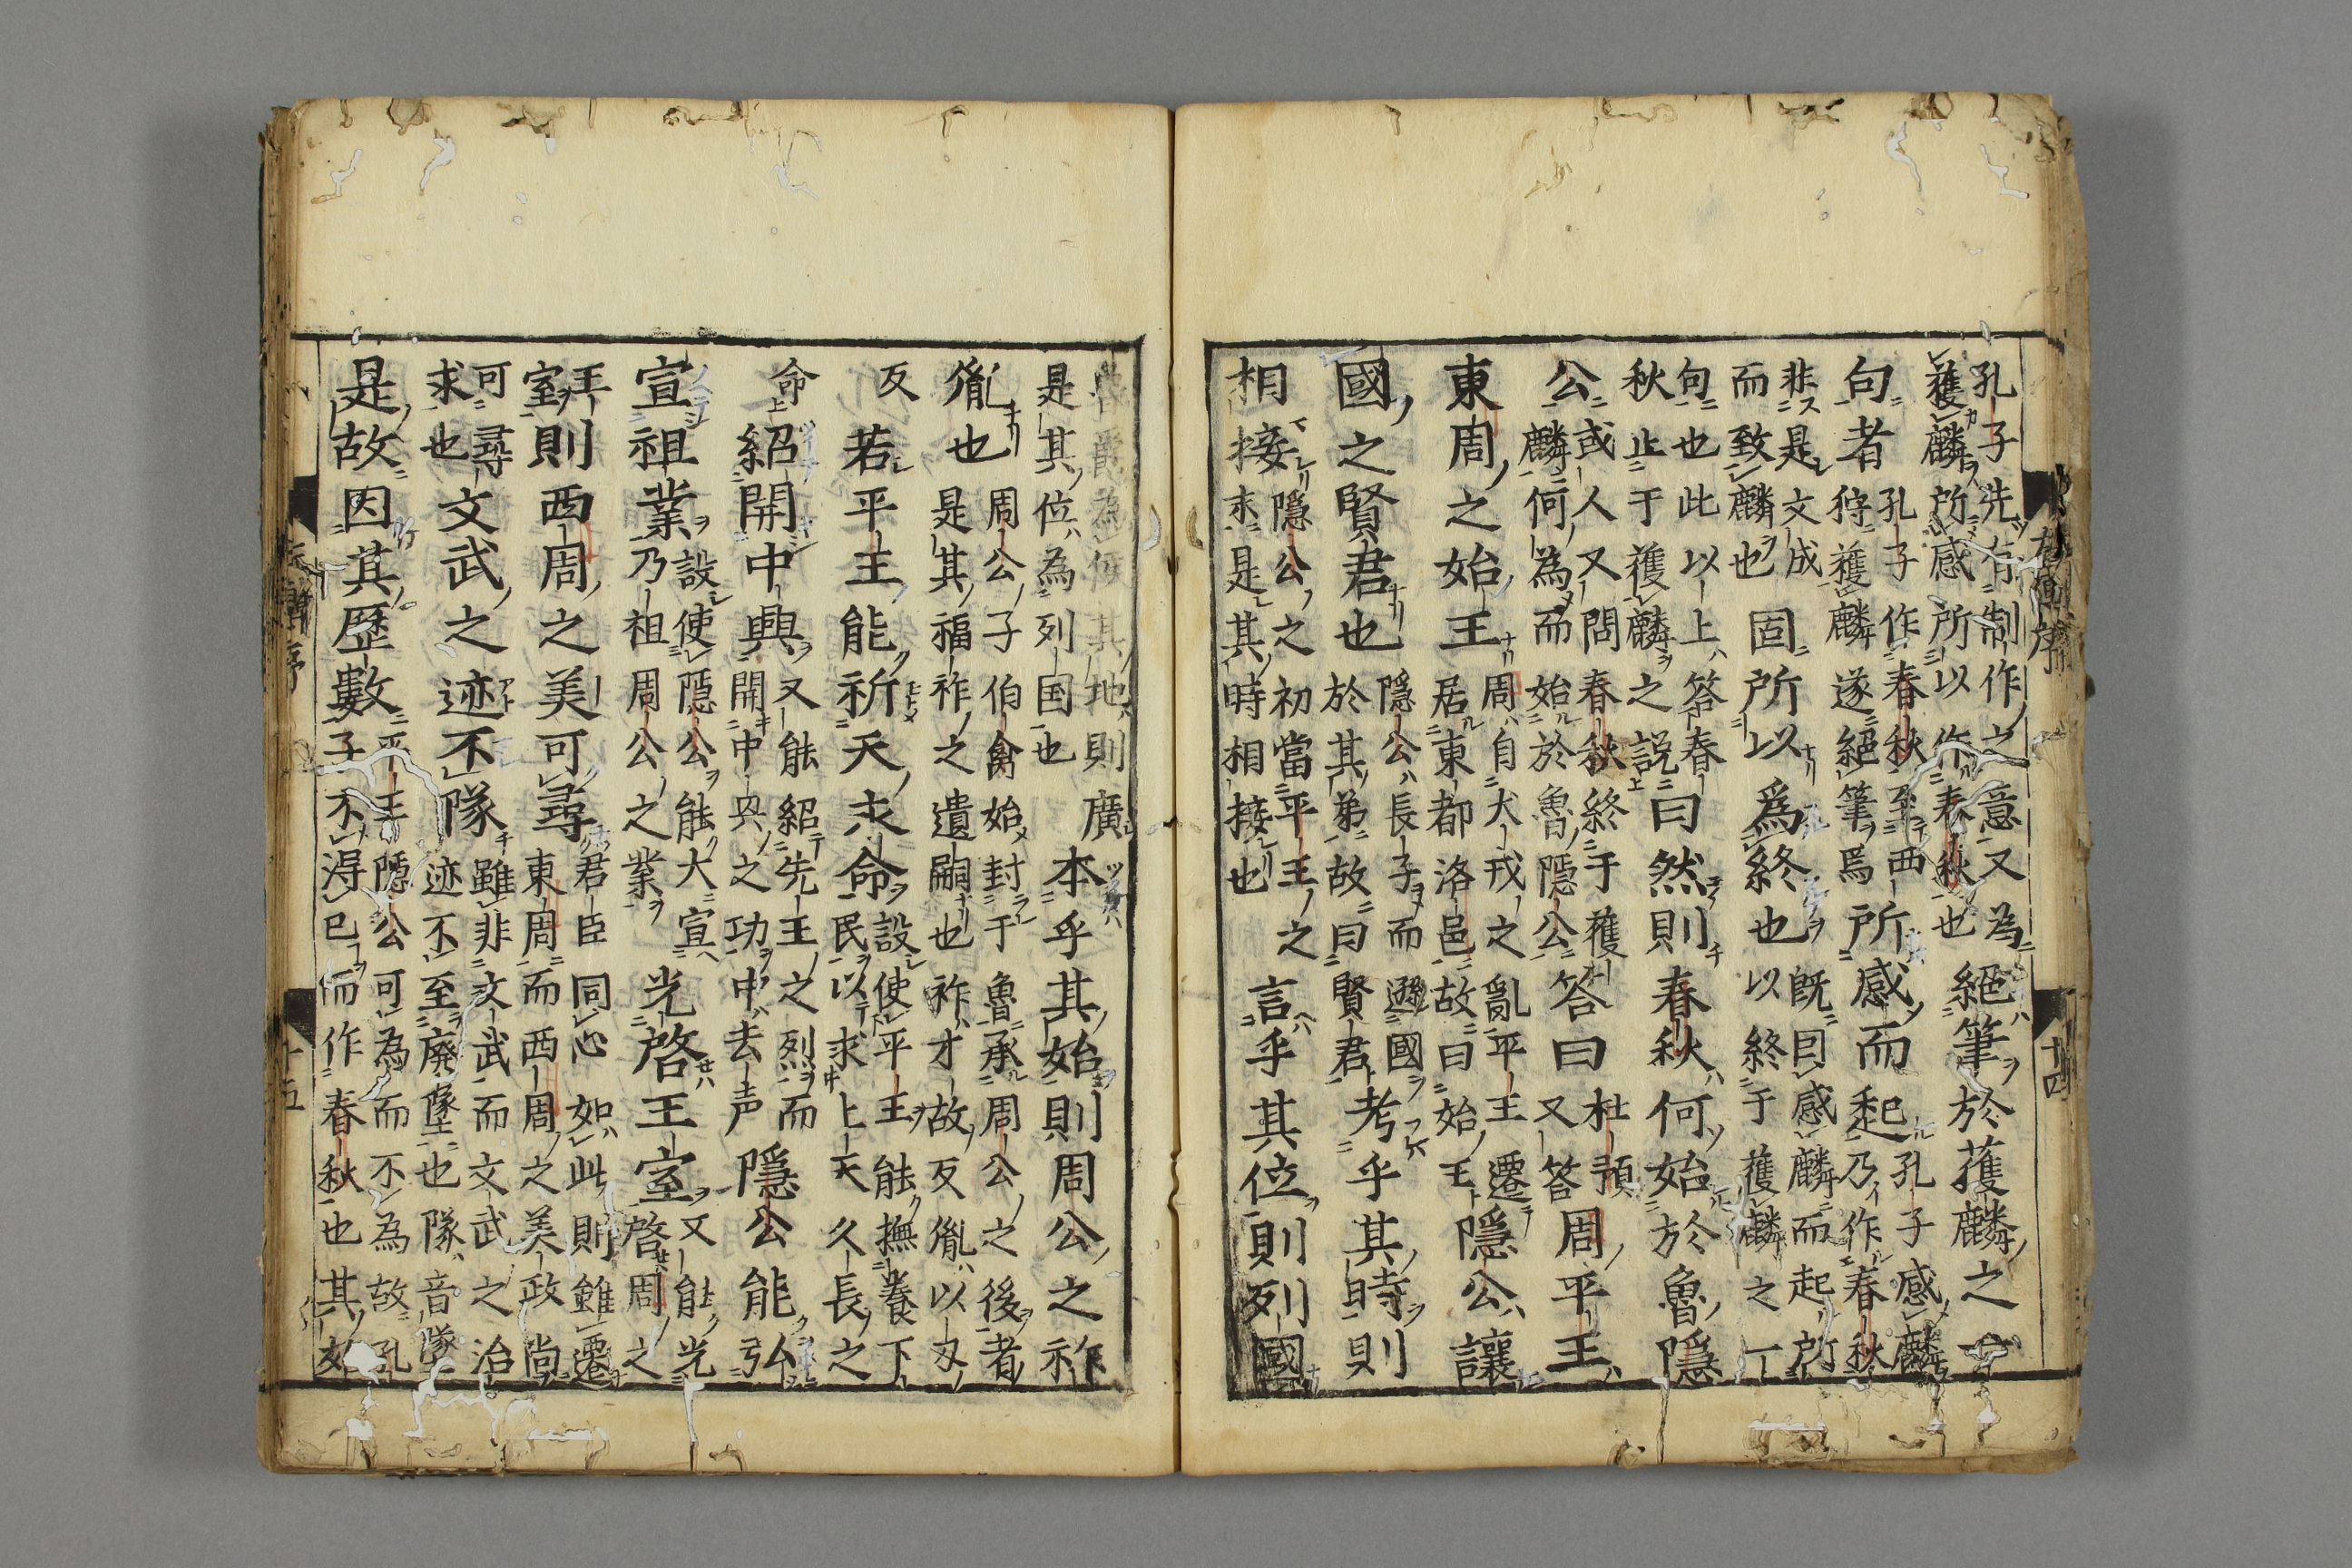 孔子先有制作之意又為
獲麟所感所以作春秋也
絕筆於獲麟之一
句者
孔子作春秋至西
狩獲麟遂絕筆焉
所感而起
孔子感麟
乃作春秋
非是文成
而致麟也
固所以爲終也
既因感麟而起所
以終于獲麟之一
句也此以上答春
秋止于獲麟之説
曰然則春秋何始於魯隱
公
或人又問春秋終于獲
麟何為而始於魯隱公
答曰
杜預
又答
周平王
東周之始王
周自犬戎之亂平王遷
居東都洛邑故曰始王
隱公讓
國之賢君也
隱公長子而遜國
於其弟故曰賢君
考乎其時則
相接
隱公之初當平王之
末是其時相接也
言乎其位則列國
其地則廣
是其位為列国也
本乎其始則周公之祚
胤也
周公子伯禽始封于魯承周公之後者
是其福祚之遺嗣也祚才故反胤以刃
反
若平王能祈天永命
設使平王能撫養下
民以求上天久長之
命
紹開中興
又能紹先王之烈而
開中興之功中去声
隱公能弘
宣祖業
設使隱公能大宣
乃祖周公之業
光啓王室
又能光
啓周之
王
室則西周之美可尋
君臣同心如此則雖遷
東周而西周之美政尚
可尋
求也
文武之迹不隊
雖非文武而文武之治
迹不至廢墜也隊音墜
是故因其歷數
平王隱公可為而不為故孔
子不得已而作春秋也其
十四
十五